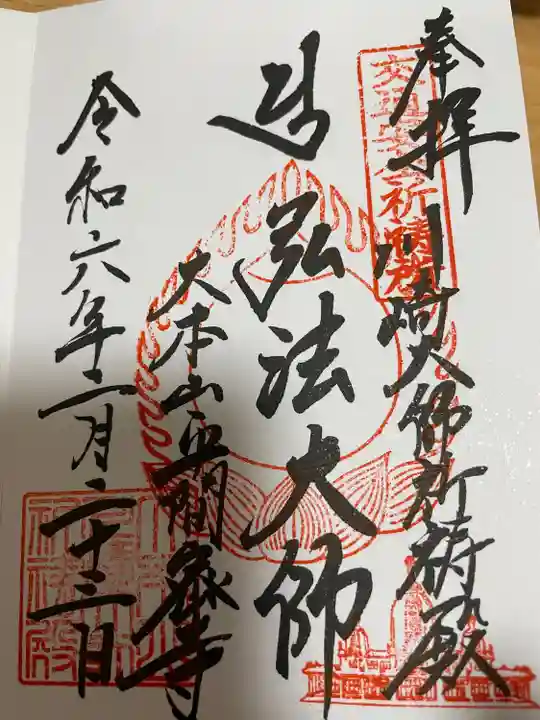 奉拝
交通安全祈祷殿
川崎大師祈祷殿
弘法大師
大本山平間寺
令和六年二月二十三日